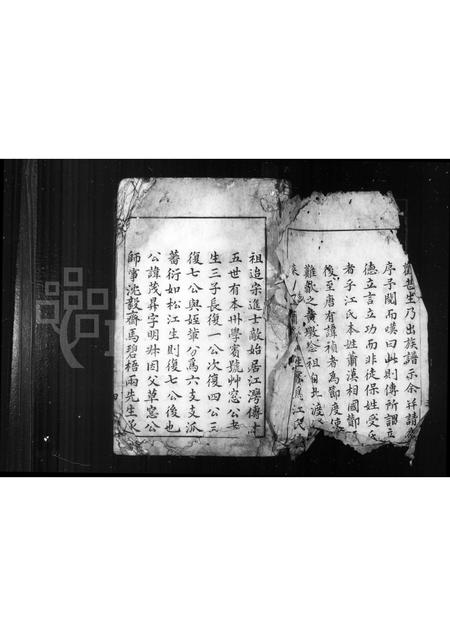 甚生乃出族譜示余并請
序予閱而嘆曰此則傳所謂立
德立言立功而非徒保姓受
者乎江氏本姓蕭漢相國酇
後至唐有諱禎者為節度使
難歙之黃墩念祖自北渡
為江氏
祖迨宗進士敵始居江灣傳十
五世有本州學賓號艸窓公者
生三子長復一公次復四公三
復七公與姪華分為六支支派
蕃衍如松江生則復七公後也
公諱茂昇字明舛因父草窓公
師事洮毅齋馬碧梧兩先生